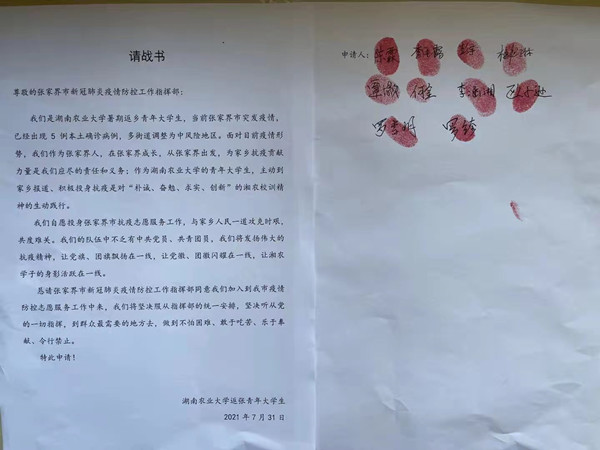 请战书
尊敬的张家界市新冠肺炎疫情防控工作指挥部：
我们是湖南农业大学暑期返乡青年大学生，当前张家界市突发疫情，
已经出现 5 例本土确诊病例，多街道调整为中风险地区。面对目前疫情形
势，我们作为张家界人，在张家界成长，从张家界出发，为家乡抗疫贡献
力量是我们应尽的责任和义务；作为湖南农业大学的青年大学生，主动到
家乡报道、积极投身抗疫是对“朴诚、奋勉、求实、创新”的湘农校训精
神的生动践行。
我们自愿投身张家界市抗疫志愿服务工作，与家乡人民一道攻克时艰，
共度难关。我们的队伍中不乏有中共党员、共青团员，我们将发扬伟大的
抗疫精神，让党旗、团旗飘扬在一线，让党徽、团徽闪耀在一线，让湘农
学子的身影活跃在一线。
恳请张家界市新冠肺炎疫情防控工作指挥部同意我们加入到我市疫情
防控志愿服务工作中来，我们将坚决服从指挥部的统一安排，坚决听从党
的一切指挥，到群众最需要的地方去，做到不怕困难、敢于吃苦、乐于奉
献、令行禁止。
特此申请！
湖南农业大学返张青年大学生
2021 年 7 月 31 日
申请人：陈霖